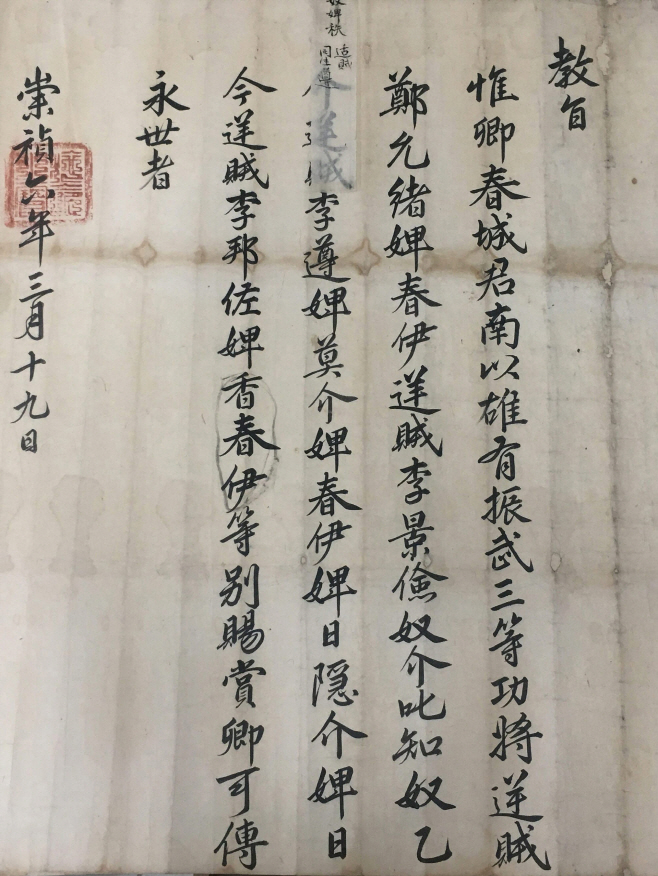 教旨
惟卿春城君南以雄有振武三等功將逆賊
鄭允緖婢春伊逆賊李景儉奴介叱知奴乙
李遵婢莫介婢春伊婢日隱介婢日
今逆賊李邦佐婢香春伊等別賜賞卿可傳
永世者
崇禎六年三月十九日
奴婢秩
逆賊